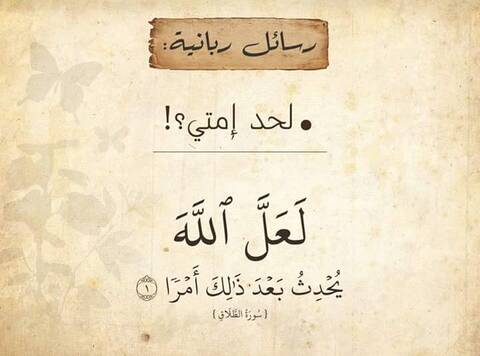 رسائل ربانية:
• لحد إمتي؟!
لَعَلَّ ٱللَّهَ
يُحْدِثُ بَعْدَ ذَٰلِكَ أَمْرًا ١
{ سُورَةُ الطَّلَاقِ }